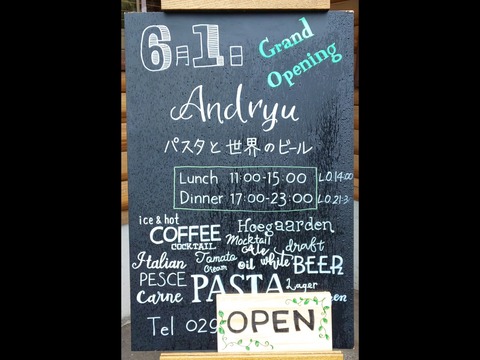 6月1日
Grand
Opening
Andryu
パスタと世界のビール
Lunch 11:00-15:00 L.O.14:00
Dinner 17:00-23:00 L.O.21:3
ice & hot
COFFEE
COCKTAIL
Hoegaarden
Mocktail
Ale
draft
Italian
Tomato
Cream
oil
white
BEER
PESCE
PASTA
Lager
Carne
Tel 029
OPEN